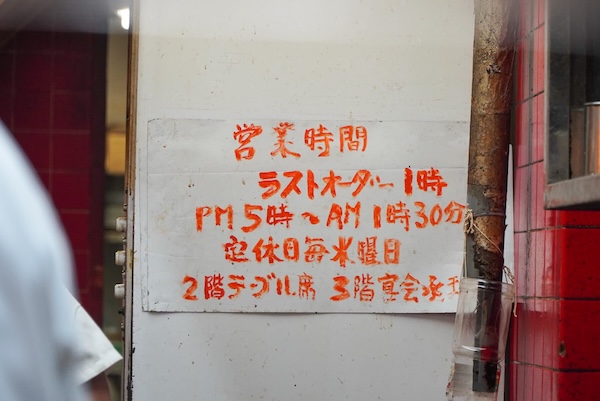 営業時間
ラストオーダー 1時
PM5時〜AM1時30分
定休日毎水曜日
2階テーブル席 3階宴会承